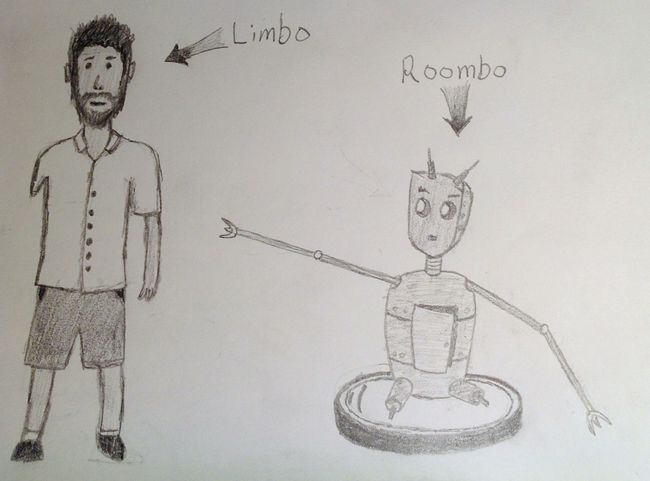 Limbo
Roombo